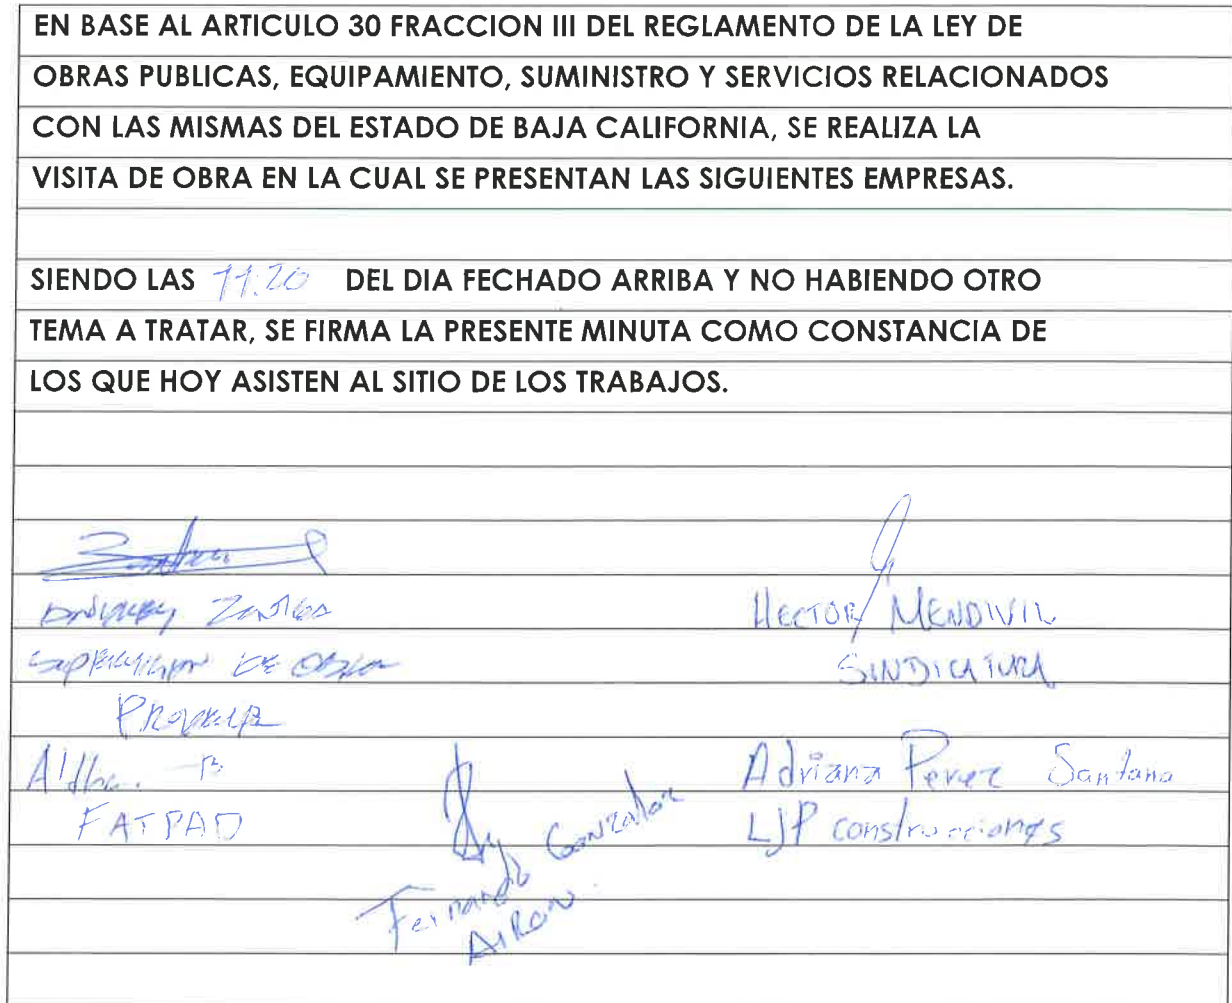 EN BASE AL ARTICULO 30 FRACCION III DEL REGLAMENTO DE LA LEY DE
OBRAS PUBLICAS, EQUIPAMIENTO, SUMINISTRO Y SERVICIOS RELACIONADOS
CON LAS MISMAS DEL ESTADO DE BAJA CALIFORNIA, SE REALIZA LA
VISITA DE OBRA EN LA CUAL SE PRESENTAN LAS SIGUIENTES EMPRESAS.
SIENDO LAS 11:20 DEL DIA FECHADO ARRIBA Y NO HABIENDO OTRO
TEMA A TRATAR, SE FIRMA LA PRESENTE MINUTA COMO CONSTANCIA DE
LOS QUE HOY ASISTEN AL SITIO DE LOS TRABAJOS.
HECTOR MENDIVIL
SUPERVISION DE OBRA
SINDICATURA
Adriana Perez Santana
FATPAD
LJP construcciones
Fernando Gonzalez
AIRON